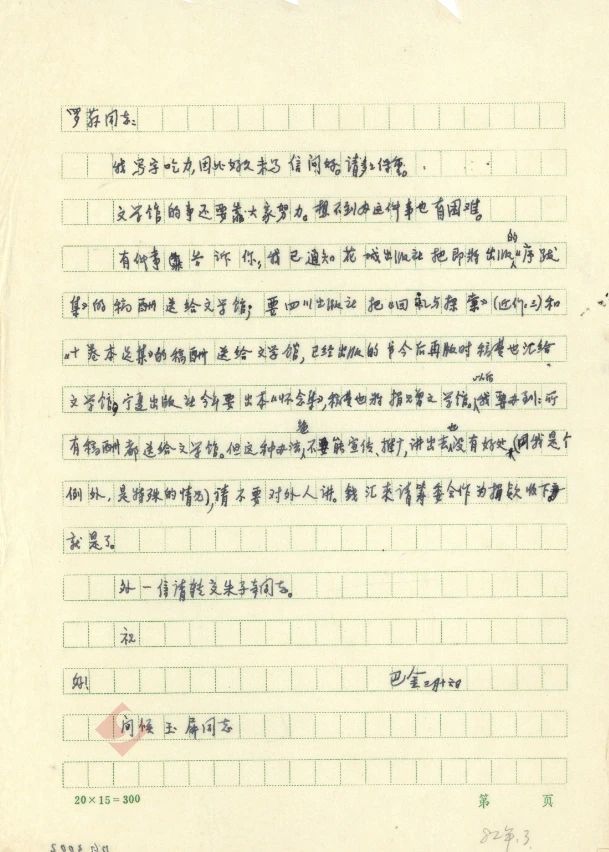 罗荪同志：
我写字吃力，因此好久未写信问好。请多多保重。
文学馆的事还要靠大家努力。想不到办这件事也有困难。
有件事告诉你，我已通知花城出版社把即将出版的《序跋
集》的稿酬送给文学馆；要四川出版社把《回忆与探索》（近作三）和
《十卷本选集》的稿酬送给文学馆，已经出版的书今后再版时稿费也汇给
文学馆。宁夏出版社今年要出本《怀念集》，稿费也将捐赠文学馆。以后我要办到：所
有稿酬都送给文学馆。但这种办法，绝不要能宣传、推广，讲出去也没有好处，(因我是个
例外，是特殊的情况)，请不要对外人讲。钱汇来请筹委会作为捐款收下
就是了。
外一信请转交朱子奇同志。
祝
好！ 巴金 月十六日
问候玉屏同志
20×15=300 第 页
82年.3.